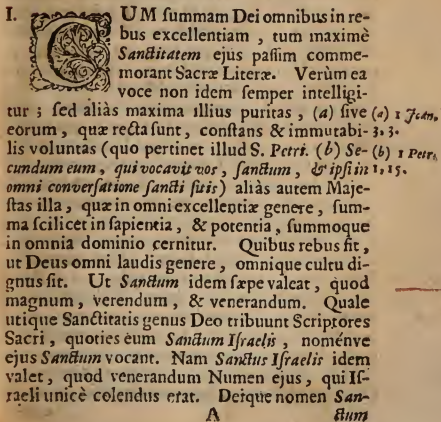 I.
CUM ſummam Dei omnibus in re-
bus excellentiam , tum maximè
Sanctitatem ejus paſſim comme-
morant Sacræ Literæ. Verùm ea
voce non idem ſemper intelligi-
tur ; ſed aliàs maxima illius puritas , (a) ſive (a) 1 Joan.
eorum , quæ recta ſunt , conſtans & immutabi- 3. 3.
lis voluntas (quo pertinet illud S. Petri. (b) Se- (b) 1 Petr.
cundum eum , qui vocavit vos , ſanctum , & ipſi in 1, 15.
omni converſatione ſancti ſitis) aliàs autem Maje-
ſtas illa , quæ in omni excellentiæ genere , ſum-
ma ſcilicet in ſapientia , & potentia , ſummoque
in omnia dominio cernitur. Quibus rebus fit ,
ut Deus omni laudis genere , omnique cultu di-
gnus ſit. Ut Sanctum idem ſæpe valeat , quod
magnum , verendum , & venerandum. Quale
utique Sanctitatis genus Deo tribuunt Scriptores
Sacri , quoties eum Sanctum Iſraelis , noménve
ejus Sanctum vocant. Nam Sanctus Iſraelis idem
valet , quod venerandum Numen ejus , qui Iſ-
raeli unicè colendus erat. Deique nomen San-
A ctum